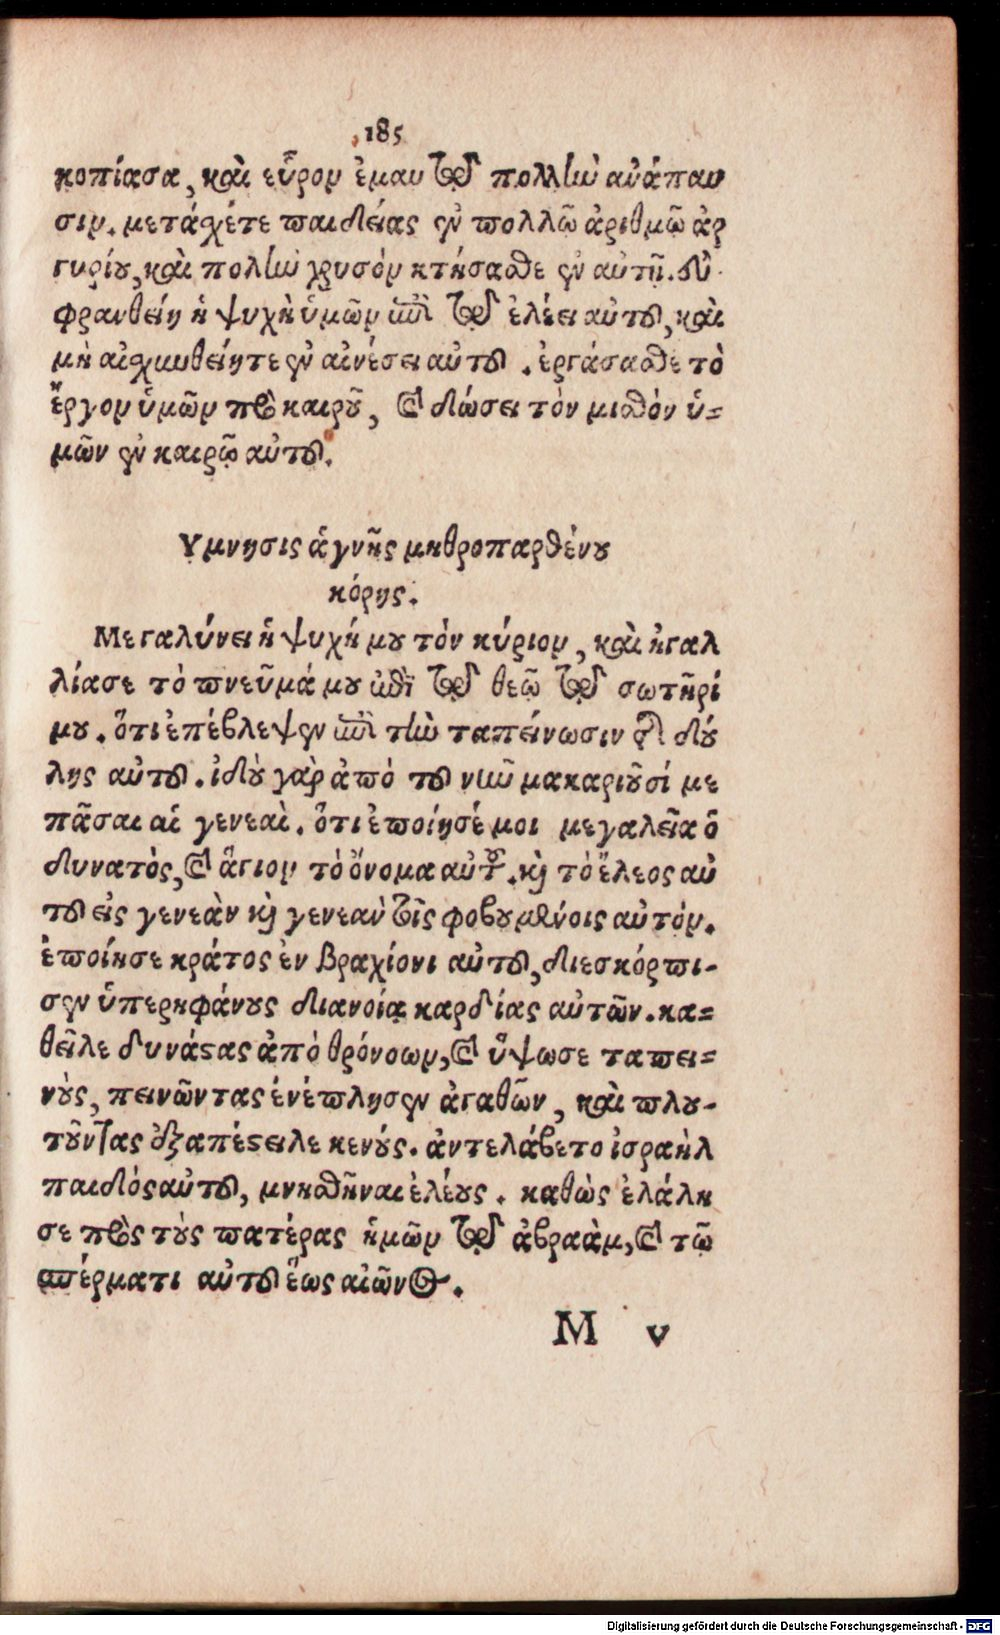 185
κοπίασα, καὶ εὗρον ἐμαυτῷ πολλὴν ἀνάπαυ
σιν. μετάχέτε παιδείας ἐν πολλῷ ἀριθμῷ ἀρ
γυρίου, καὶ πολὺν χρυσόν κτήσασθε ἐν αὐτῇ. εὐ
φρανθείη ἡ ψυχὴ ὑμῶν ἐπὶ τῷ ἐλέει αὐτοῦ, καὶ
μὴ αἰσχυνθείητε ἐν αἰνέσει αὐτοῦ. ἐργάσασθε τὸ
ἔργον ὑμῶν πρὸ καιροῦ, καὶ δώσει τὸν μισθὸν ὑ=
μῶν ἐν καιρῷ αὐτοῦ.
Υμνησις ἁγνῆς μητροπαρθένου
κόρης.
Μεγαλύνει ἡ ψυχή μου τὸν κύριον, καὶ ἠγαλ
λίασε τὸ πνεῦμά μου ἐπὶ τῷ θεῷ τῷ σωτῆρί
μου. ὅτι ἐπέβλεψεν ἐπὶ τὴν ταπείνωσιν τῆς δού
λης αὐτοῦ. ἰδοὺ γὰρ ἀπὸ τοῦ νῦν μακαριοῦσί με
πᾶσαι αἱ γενεαὶ. ὅτι ἐποίησέ μοι μεγαλεῖα ὁ
δυνατὸς, καὶ ἅγιον τὸ ὄνομα αὐτοῦ. καὶ τὸ ἔλεος αὐ
τοῦ εἰς γενεὰν καὶ γενεὰν τοῖς φοβουμένοις αὐτόν.
ἐποίησε κράτος ἐν βραχίονι αὐτοῦ, διεσκόρπι-
σεν ὑπερηφάνους διανοίᾳ καρδίας αὐτῶν. κα=
θεῖλε δυνάστας ἀπὸ θρόνοων, καὶ ὕψωσε ταπει=
νοὺς, πεινῶντας ἐνέπλησεν ἀγαθῶν, καὶ πλου-
τοῦντας ἐξαπέστειλε κενούς. ἀντελάβετο ἰσραὴλ
παιδὸς αὐτοῦ, μνησθῆναι ἐλέους. καθὼς ἐλάλη
σε πρὸς τοὺς πατέρας ἡμῶν τῷ ἀβραὰμ, καὶ τῷ
σπέρματι αὐτοῦ ἕως αἰῶνος.
M v
Digitalisierung gefördert durch die Deutsche Forschungsgemeinschaft - DFG